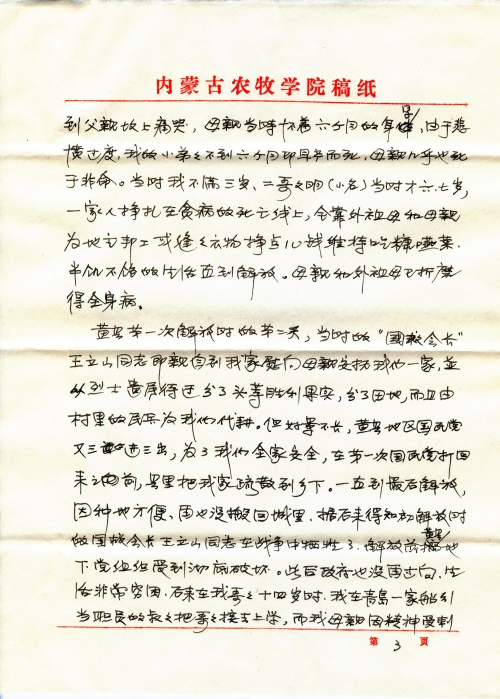 内蒙古农牧学院稿纸
到父親坟上痛哭，母親当時怀着六个月的身孕，由于悲
憤过度，我的小弟弟不到六个月即早产而死，母親几乎也死
于非命。当时我不满三岁、二哥（小名）当时才六七岁，
一家人挣扎在贪病的死亡线上，全靠外祖母和母親
为地主邦工或缝衣物挣点儿钱维持吃糠嚥菜.
半饥不饱的生活直到解放。母親和外祖母已折磨
得全身病。
黄县第一次解放时的第二天，当时的"國救会长"
王立山同志即親自到我家慰问母親安抚我们一家，並
以烈士家属待迂分了头等胜利果实，分了田地，而且由
村里的民兵为我们代耕。但好景不长，黄县地区国民党
又三进三出，为了我们全家安全，在第一次国民党打回
来之前，县里把我家疏散到乡下。一直到最后解放，
因种地方便、再也没搬回城里. 据后来得知初解放时
的国救会长王立山同志在战争中牺牲了. 解放前黄县地
下党组织受到彻底破坏。此后政府也没再过问，生
活非常穷困. 后来在我哥哥十四岁时. 我在青島一家船行
当职员的叔叔把哥哥接去上学，而我母親因精神受刺
第 3 页